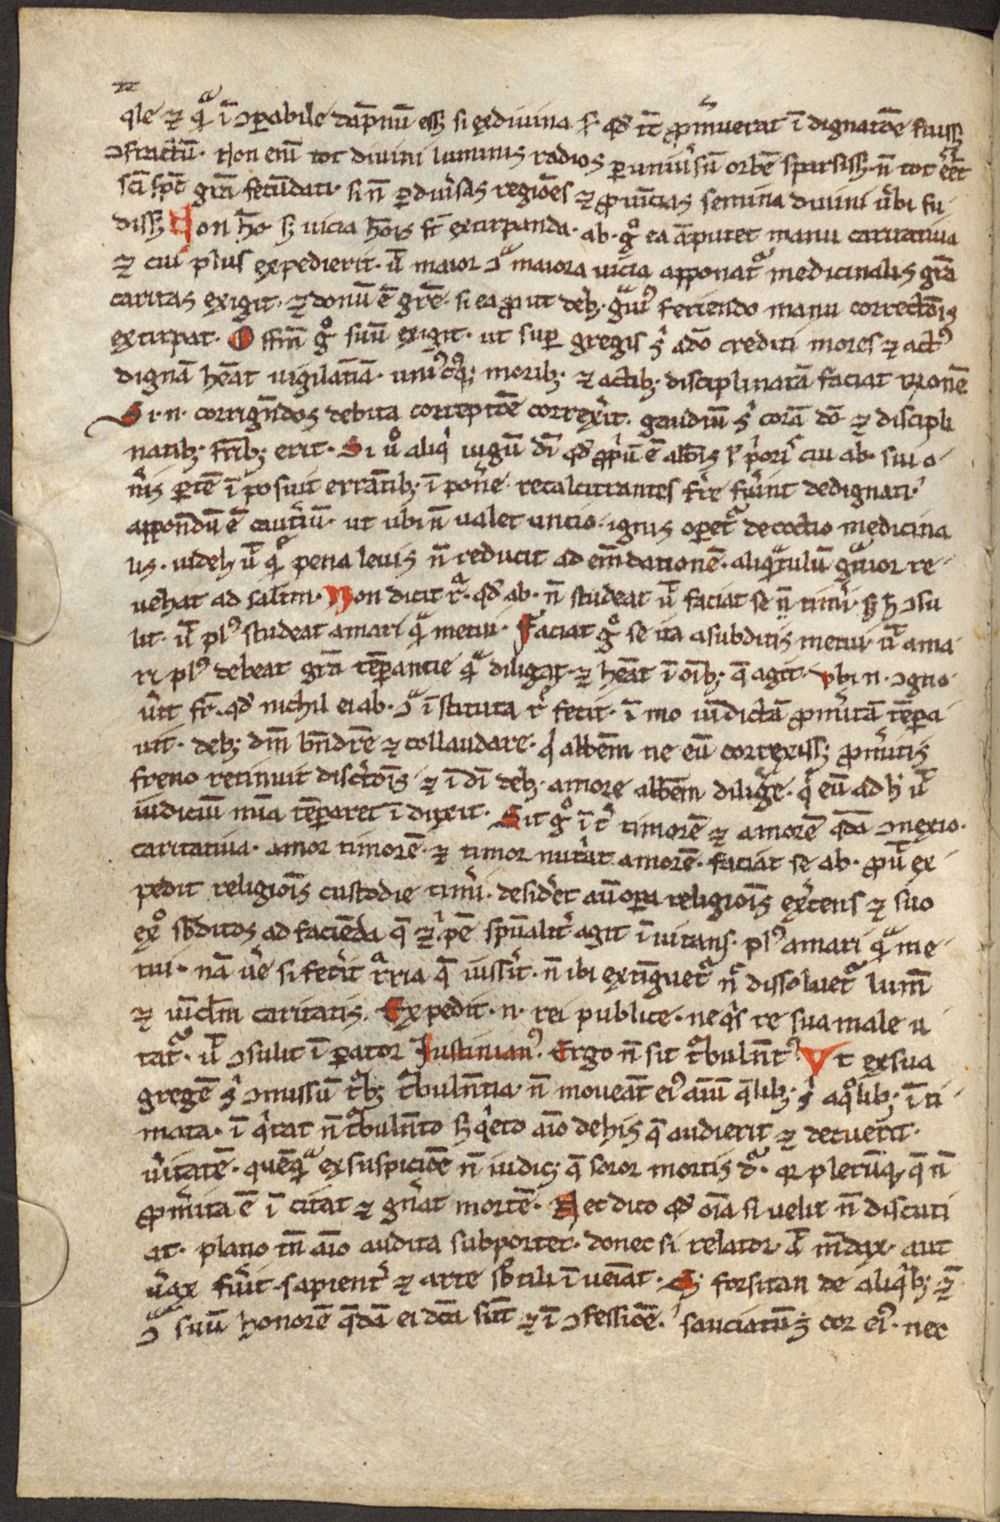 qle ⁊ qͣ ī ꝯparabile dāpnū eēt si ex diuina s̄ qd̓ tc̄ ꝓm̓uerat ī dignatōe fuiss;
ꝯfractū. Non enī tot diuini luminis radios ꝑ uniūsū orbē sparsiss; n̄ tot eēt
sc̄i sp̄c gr̄a fecūdati. si n̄ ꝑ diūsas regiōes ⁊ ꝓuīcias semina diuini ūbi fu-
diss; Non hō s; uicia hōis st̄ extirpanda. ab. gͦ ea āputet manu caritatiua
⁊ cui plus expedierit. ul̄ maior ꝯͣ maiora uicia apponatᷣ medicinalis gr̄a
caritas exigit. ⁊ donū ē gr̄e. si ea ꝓut deb; gͣui᷒ feriendo manu correctōis
extirpat. Offm̄ gͦ suū exigit. ut suꝑ gregis s̓ a dō crediti mores ⁊ act᷒
dignā hēat uigilātiā. uni᷒cq; morib; ⁊ actib; disciplinatā faciat rōnē
Si. n. corrign̄dos debita correptōe correxit. gaudiū s̓ corā dō ⁊ discipli
natib; frīb; erit. Si uͦ aliqͥ iugū dn̄i qd̓ ꝓpͥū ē abb̄is ul̓ pͥoriˢ cui ab. sui o-
n̓is ꝑtē ī posuit errātib; ī pon̓e. recalcitrantes fr̄e fūint dedignati.
apponēdū ē cautiū. ut ubi n̄ ualet unctio. ignis opetᷣ decoctio medicina
lis. uideh ul̄ qͥ pena leuis n̄ reducit ad em̄dationē. aliqͣtulū gͣuior re-
uehat ad saltm̄. Non dicit rͣ. qd̓ ab. n̄ studeat ul̄ faciat se n̄ tim̓i s; h̓ ꝯsu
lit. ul̄ pl᷒ studeat amari qͣ metui. Faciat gͦ se ita a subditis metui ul̄ ama
ri pl᷒ debeat gr̄a tēperantie qͣ diligat. ⁊ hēat ī oīb; q̄ agit. Vbi n. ꝯgno-
ūit fr̄. qd̓ nichil ei ab. ꝯͣ īstituta rͤ fecit. ī mo uīdictā ꝓm̓itā tēpa
uit. deb; dm̄ bn̄drē ⁊ collaudare. qͥ abbēm ne eū correxiss; ꝓm̓itis
freno retinuit discͤtōis ⁊ ī dī deb; amore abbēm dilig̓e. qͥ eū ad h̓ ul̄
iudiciū nīa tēperaret īduxit. Sit gͦ ī tͤ timorē ⁊ amorē qd̄a ꝯnexio.
caritatiua. amor timorē. ⁊ timor nutͥat amorē. faciat se ab. ꝓut̄ ex-
pedit religiōis custodie tim̓i. desid̓et aūt opa religiōis ex̓cens ⁊ suo
exͦ sb̄ditos ad faciēda q̄ ⁊ iͥpē sp̄ualit̓ agit ī uitans. pl᷒ amari qͣ me-
tui. nā ūe si fec̓it ꝯͣria q̄ iuss̓it. n̄ ibi extīguetᷣ n̄ͨ dissoluetᷣ lum̄
⁊ uīclm̄ caritatis. Expedit. n. rei publice. ne qͥs re sua male u
tatᷣ. ul̄ ꝯsulit īperator Iustinian᷒. Ergo n̄ sit tͬbuln̄t᷒ Vt ex sua
gregē s̓ ꝯmissū tͬb; tͬbulēntia. n̄ moueāt ei᷒ aīū qͣlib; s̓ aqͦlib; īti-
mata. ī qͥrat n̄ tͬbuln̄to s; qͥeto aīo de his q̄ audierit ⁊ decreuerit.
ūitatē. quēqͣ ex suspiciōe n̄ iudic; q̄ soror mortis dͬ. qꝛ plerūq; q̄ n̄
ꝓm̓ita ē īcitat ⁊ gn̄at mortē. Nec dico qd̓ oīa si uelit n̄ discuti
at. plano tn̄ aīo audita subportet. donec si relator. ul̄ m̄dax. aut
ūax fūit. sapient̓ ⁊ arte sb̄tili ī ueniat. S; forsitan de aliqͥb; ⁊
ꝯͣ suū honorē qd̄a ei dc̄a sūt ⁊ ī ꝯfessiōe. sauciatūq; cor ei᷒. nec